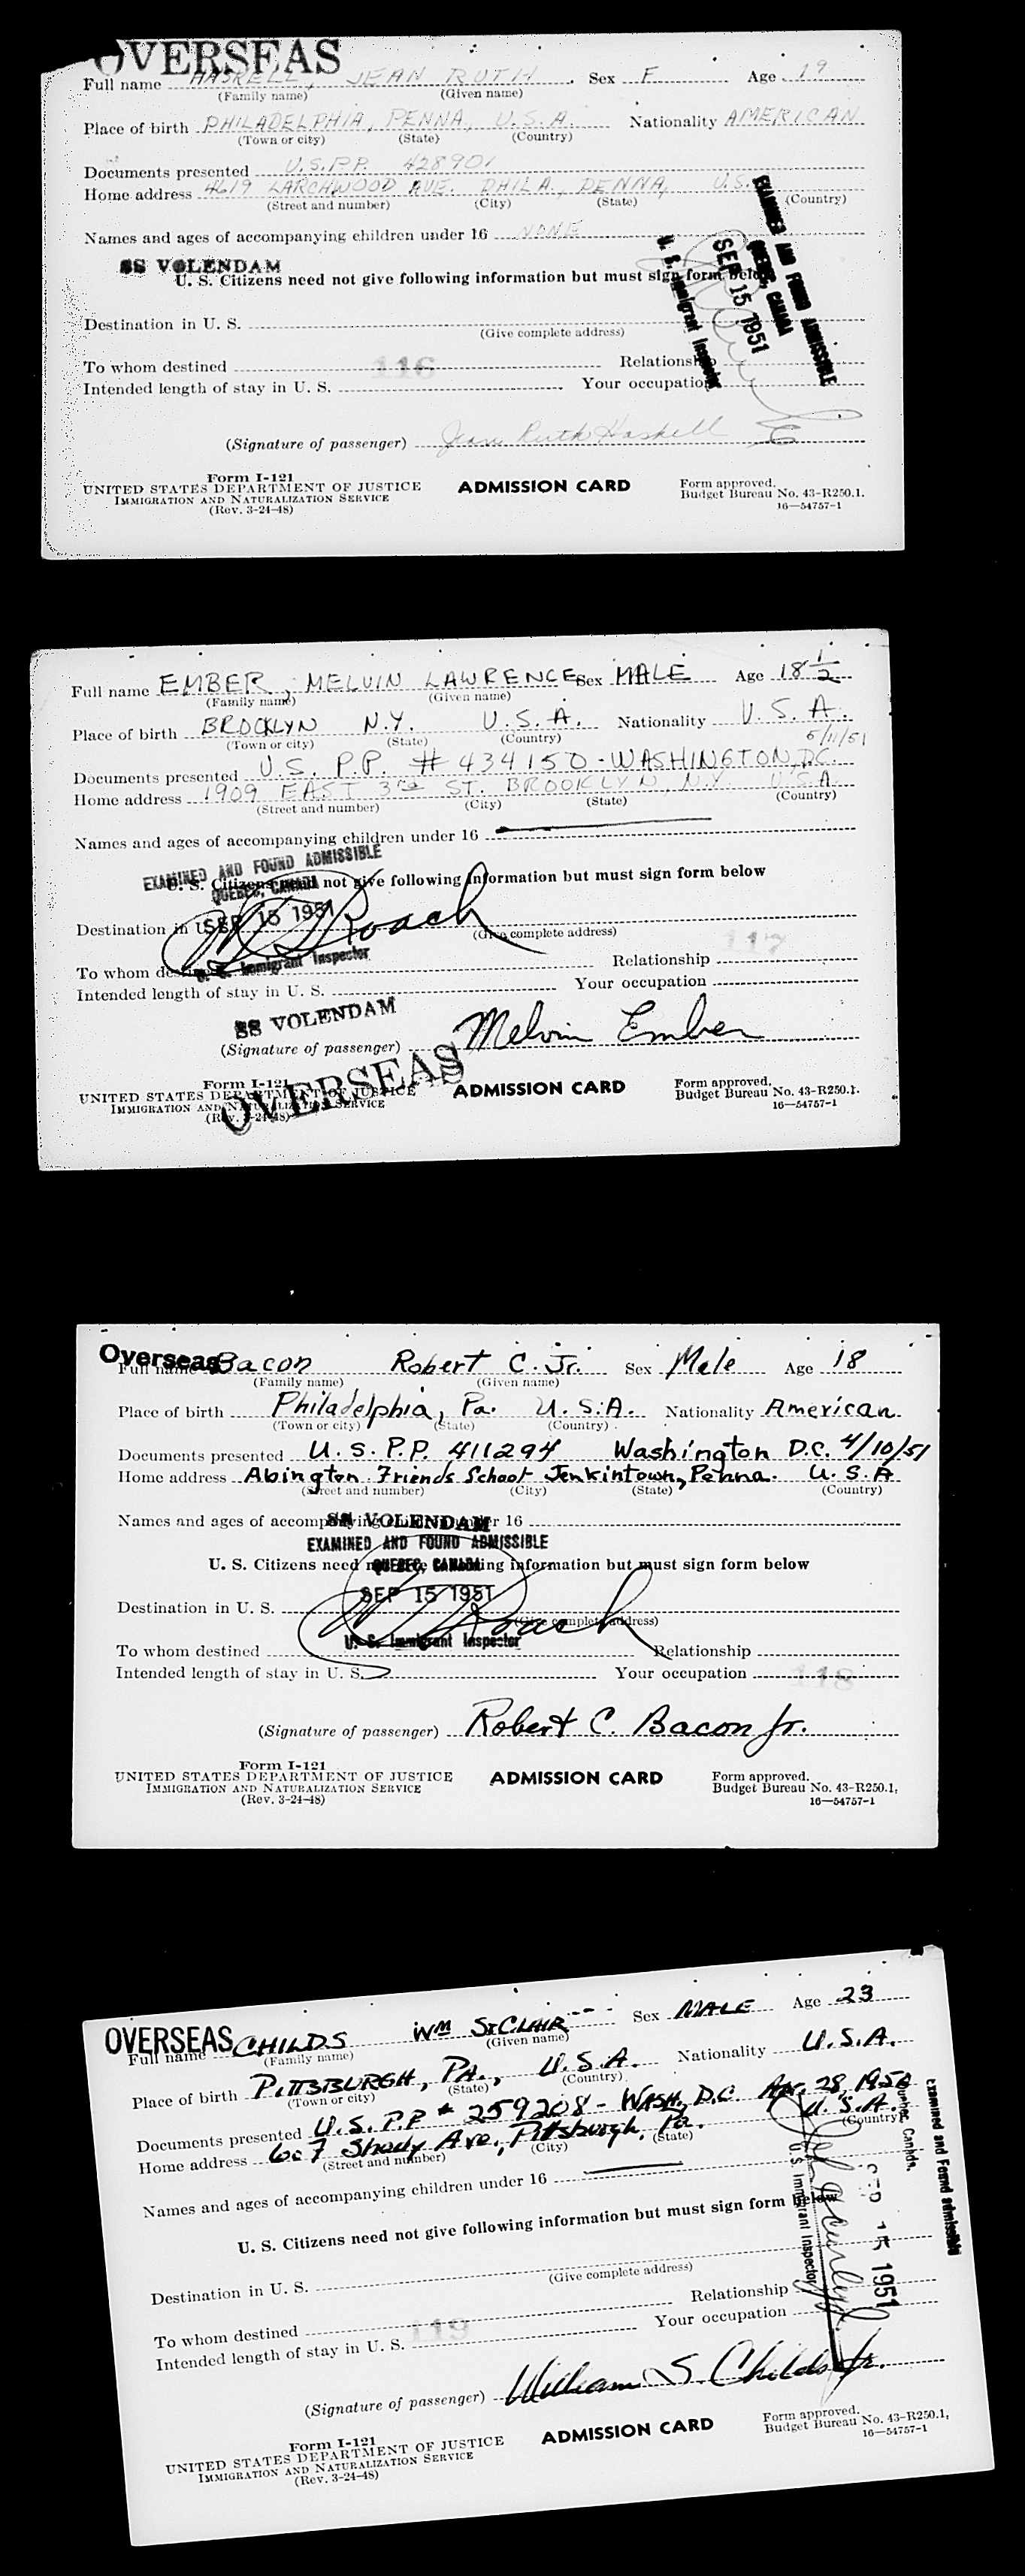 OVERSEAS
Full name HASKELL, JEAN RUTH Sex F Age 19
(Family name) (Given name)
Place of birth PHILADELPHIA, PENNA, U.S.A. Nationality AMERICAN
(Town or city) (State) (Country)
Documents presented U.S.P.P. 428901
Home address 4619 LARCHWOOD AVE. PHILA., PENNA, U.S.
(Street and number) (City) (State) (Country)
Names and ages of accompanying children under 16 NONE
SS VOLENDAM
U. S. Citizens need not give following information but must sign form below
EXAMINED AND FOUND ADMISSIBLE
QUEBEC, CANADA
SEP 15 1951
U. S. Immigrant Inspector
Destination in U. S.
(Give complete address)
To whom destined 116 Relationship
Intended length of stay in U. S. Your occupation
(Signature of passenger) Jean Ruth Haskell
Form I-121
UNITED STATES DEPARTMENT OF JUSTICE
IMMIGRATION AND NATURALIZATION SERVICE
(Rev. 3-24-48)
ADMISSION CARD
Form approved.
Budget Bureau No. 43-R250.1.
16—54757-1
Full name EMBER, MELVIN LAWRENCE Sex MALE Age 18 1/2
(Family name) (Given name)
Place of birth BROOKLYN N.Y. U.S.A. Nationality U.S.A.
(Town or city) (State) (Country) 5/11/51
Documents presented U.S. P.P. # 434150 - WASHINGTON, D.C.
Home address 1909 EAST 3rd ST. BROOKLYN, N.Y. U.S.A.
(Street and number) (City) (State) (Country)
Names and ages of accompanying children under 16
EXAMINED AND FOUND ADMISSIBLE
U. S. Citizens need not give following information but must sign form below
QUEBEC, CANADA
SEP 15 1951
Roach
Destination in U. S.
(Give complete address)
U. S. Immigrant Inspector
117
To whom destined Relationship
Intended length of stay in U. S. Your occupation
SS VOLENDAM
(Signature of passenger) Melvin Ember
OVERSEAS
Form I-121
UNITED STATES DEPARTMENT OF JUSTICE
IMMIGRATION AND NATURALIZATION SERVICE
(Rev. 3-24-48)
ADMISSION CARD
Form approved.
Budget Bureau No. 43-R250.1.
16—54757-1
Overseas
Full name Bacon Robert C. Jr. Sex Male Age 18
(Family name) (Given name)
Place of birth Philadelphia, Pa. U.S.A. Nationality American
(Town or city) (State) (Country)
Documents presented U.S.P.P. 411294 Washington D.C. 4/10/51
Home address Abington Friends School Jenkintown, Penna. U.S.A
(Street and number) (City) (State) (Country)
Names and ages of accompanying children under 16
SS VOLENDAM
EXAMINED AND FOUND ADMISSIBLE
U. S. Citizens need not give following information but must sign form below
QUEBEC, CANADA
SEP 15 1951
Roach
Destination in U. S.
(Give complete address)
U. S. Immigrant Inspector
To whom destined Relationship
Intended length of stay in U. S. Your occupation 118
(Signature of passenger) Robert C. Bacon Jr.
Form I-121
UNITED STATES DEPARTMENT OF JUSTICE
IMMIGRATION AND NATURALIZATION SERVICE
(Rev. 3-24-48)
ADMISSION CARD
Form approved.
Budget Bureau No. 43-R250.1.
16—54757-1
OVERSEAS
Full name CHILDS WM ST.CLAIR Sex MALE Age 23
(Family name) (Given name)
Place of birth PITTSBURGH, PA., U.S.A. Nationality U.S.A.
(Town or city) (State) (Country)
Documents presented U.S.P.P # 259208 - WASH. D.C. Apr. 28, 1950
Home address 607 Shady Ave., Pittsburgh, Pa. U.S.A.
(Street and number) (City) (State) (Country)
Names and ages of accompanying children under 16
U. S. Citizens need not give following information but must sign form below
Examined and Found admissible
Quebec, Canada.
SEP 15 1951
U.S. Immigrant Inspector
Destination in U. S.
(Give complete address)
To whom destined 119 Relationship
Intended length of stay in U. S. Your occupation
(Signature of passenger) William S. Childs Jr.
Form I-121
UNITED STATES DEPARTMENT OF JUSTICE
IMMIGRATION AND NATURALIZATION SERVICE
(Rev. 3-24-48)
ADMISSION CARD
Form approved.
Budget Bureau No. 43-R250.1.
16—54757-1